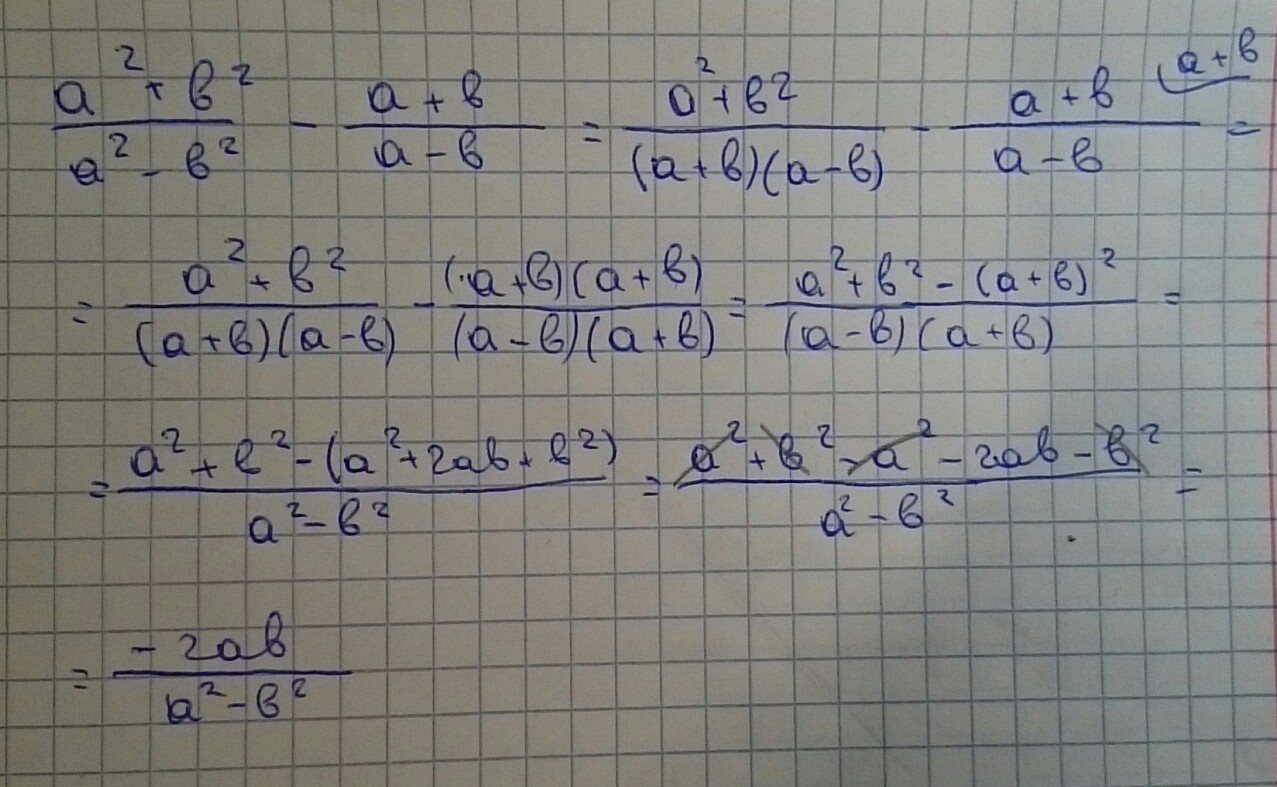 $\frac{a^2+в^2}{a^2-в^2} - \frac{a+в}{a-в} = \frac{a^2+в^2}{(a+в)(a-в)} - \frac{a+в}{a-в}^{(a+в} =$
$= \frac{a^2+в^2}{(a+в)(a-в)} - \frac{(a+в)(a+в)}{(a-в)(a+в)} = \frac{a^2+в^2-(a+в)^2}{(a-в)(a+в)} =$
$= \frac{a^2+в^2-(a^2+2aв+в^2)}{a^2-в^2} = \frac{a^2+в^2-a^2-2aв-в^2}{a^2-в^2} =$
$= \frac{-2aв}{a^2-в^2}$